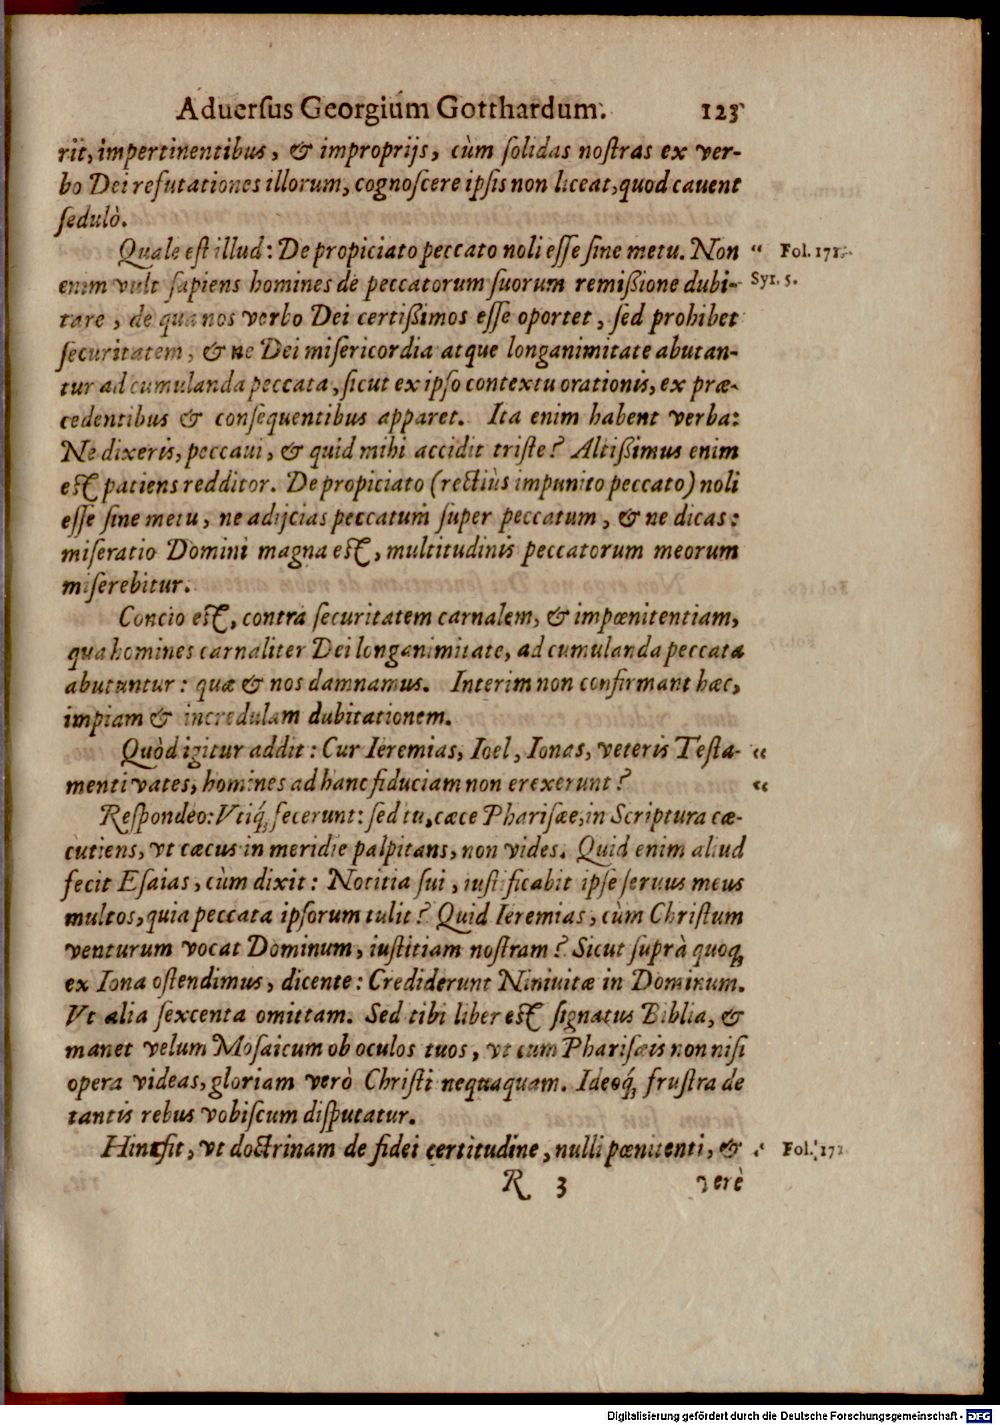 Aduerſus Georgium Gotthardum. 123
rit, impertinentibus, & improprijs, cùm ſolidas noſtras ex ver-
bo Dei refutationes illorum, cognoſcere ipſis non liceat, quod cauent
ſedulò.
Quale eſt illud: De propiciato peccato noli eſſe ſine metu. Non “ Fol. 171.
enim vult ſapiens homines de peccatorum ſuorum remißione dubi- Syr. 5.
tare, de qua nos verbo Dei certißimos eſſe oportet, ſed prohibet
ſecuritatem, & ne Dei miſericordia atque longanimitate abutan-
tur ad cumulanda peccata, ſicut ex ipſo contextu orationis, ex præ-
cedentibus & conſequentibus apparet. Ita enim habent verba:
Ne dixeris, peccaui, & quid mihi accidit triſte? Altißimus enim
eſt patiens redditor. De propiciato (rectiùs impunito peccato) noli
eſſe ſine metu, ne adijcias peccatum ſuper peccatum, & ne dicas:
miſeratio Domini magna eſt, multitudinis peccatorum meorum
miſerebitur.
Concio eſt, contra ſecuritatem carnalem, & impœnitentiam,
qua homines carnaliter Dei longanimitate, ad cumulanda peccata
abutuntur: quæ & nos damnamus. Interim non confirmant hæc,
impiam & incredulam dubitationem.
Quòd igitur addit: Cur Ieremias, Ioel, Ionas, veteris Teſta- “
menti vates, homines ad hanc fiduciam non erexerunt? “
Reſpondeo: Vtiq́; fecerunt: ſed tu, cæce Phariſæe, in Scriptura cæ-
cutiens, vt cæcus in meridie palpitans, non vides. Quid enim aliud
fecit Eſaias, cùm dixit: Notitia ſui, iuſtificabit ipſe ſeruus meus
multos, quia peccata ipſorum tulit? Quid Ieremias, cùm Chriſtum
venturum vocat Dominum, iuſtitiam noſtram? Sicut ſuprà quoq;
ex Iona oſtendimus, dicente: Crediderunt Niniuitæ in Dominum.
Vt alia ſexcenta omittam. Sed tibi liber eſt ſignatus Biblia, &
manet velum Moſaicum ob oculos tuos, vt cum Phariſæis non niſi
opera videas, gloriam verò Chriſti nequaquam. Ideoq́; fruſtra de
tantis rebus vobiſcum diſputatur.
Hinc fit, vt doctrinam de fidei certitudine, nulli pœnitenti, & “ Fol. 172
R 3 verè
Digitalisierung gefördert durch die Deutsche Forschungsgemeinschaft - DFG